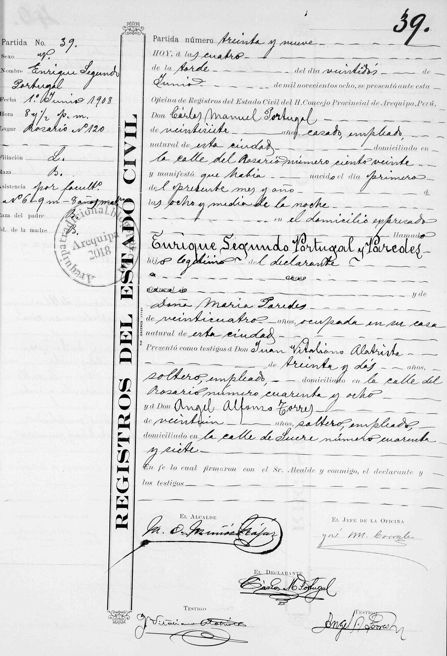 39.
Partida No. 39.
Sexo
Nombre Enrique Segundo
Portugal
Fecha 1º Junio 1908
Hora 8 y ½ p. m.
Lugar Rosario Nº 120
Filiación L.
Raza B.
Asistencia por
Raza del padre
Id. de la madre
Arequipa
2018
REGISTROS DEL ESTADO CIVIL
Partida número treinta y nueve
HOY, á las cuatro
de la tarde del día veintidós de
Junio de mil novecientos ocho, se presentó ante esta
Oficina de Registros del Estado Civil del H. Concejo Provincial de Arequipa, Perú,
Don Carlos Manuel Portugal
de veintisiete años, casado, empleado,
natural de esta ciudad domiciliado en
la calle del Rosario número ciento veinte
y manifestó que había nacido el día primero
del presente mes y año á
las ocho y media de la noche
en el domicilio expresado
llamado
Enrique Segundo Portugal y Paredes
hijo legítimo del declarante
y de
Doña Maria Paredes
de veinticuatro años, ocupada en su casa
natural de esta ciudad
Presentó como testigos á Don Juan Vitaliano Alatrista
de treinta y dós años,
soltero, empleado, domiciliado en la calle del
Rosario número cuarenta y ocho
y á Don Angel Alfonso Torres
de veintiun años, soltero, empleado,
domiciliado en la calle de Sucre número cuarenta
y siete
En fe lo cual firmaron con el Sr. Alcalde y conmigo, el declarante y
los testigos
EL ALCALDE
EL JEFE DE LA OFICINA
EL DECLARANTE
Carlos M Portugal
TESTIGO
TESTIGO